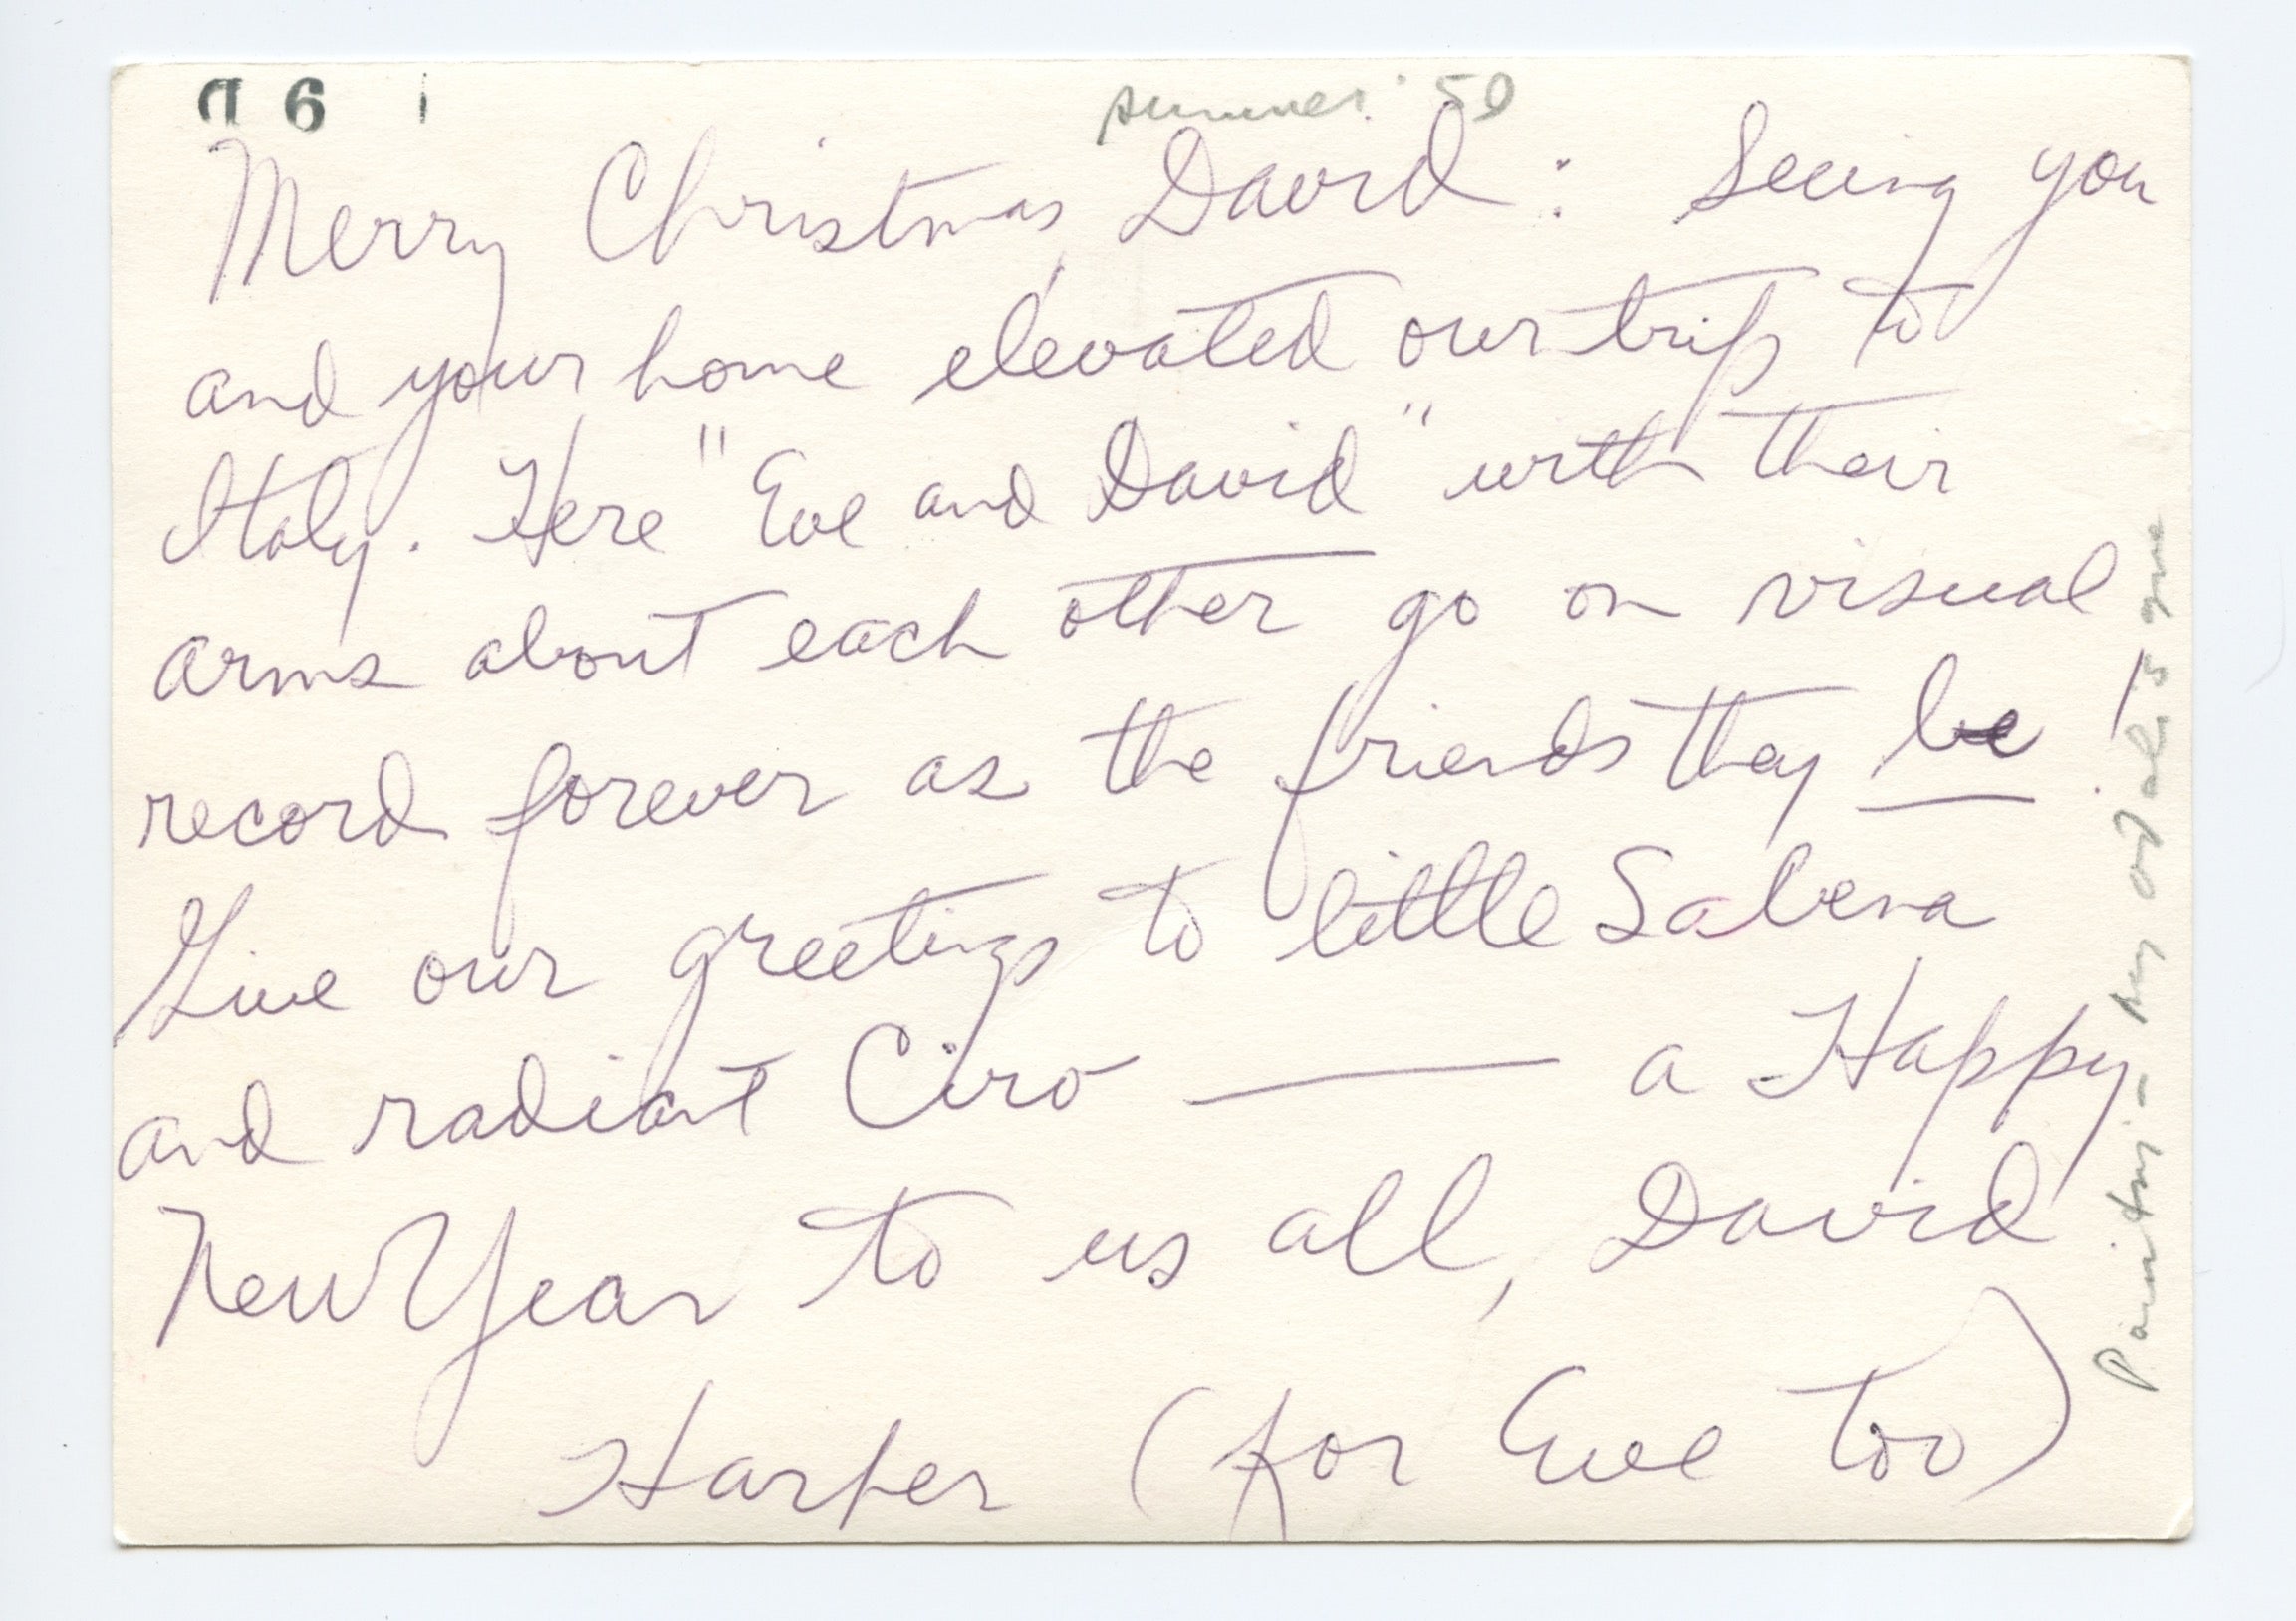 76
summer '50
Merry Christmas, David: Seeing you
and your home elevated our trip to
Italy. Here "Eve and David" with their
arms about each other go on visual
record forever as the friends they be!
Give our greetings to little Sabena
and radiant Ciro — a Happy
New Year to us all, David
Harper (for Eve too)
Painting - my is gone